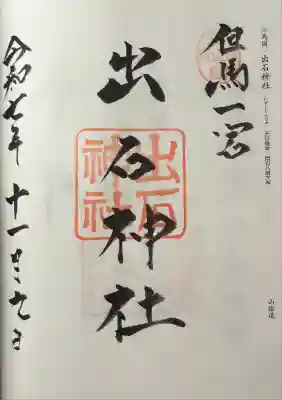 出石神社
但馬一宮
出石神社
出石神社
令和七年十一月九日
山陰道